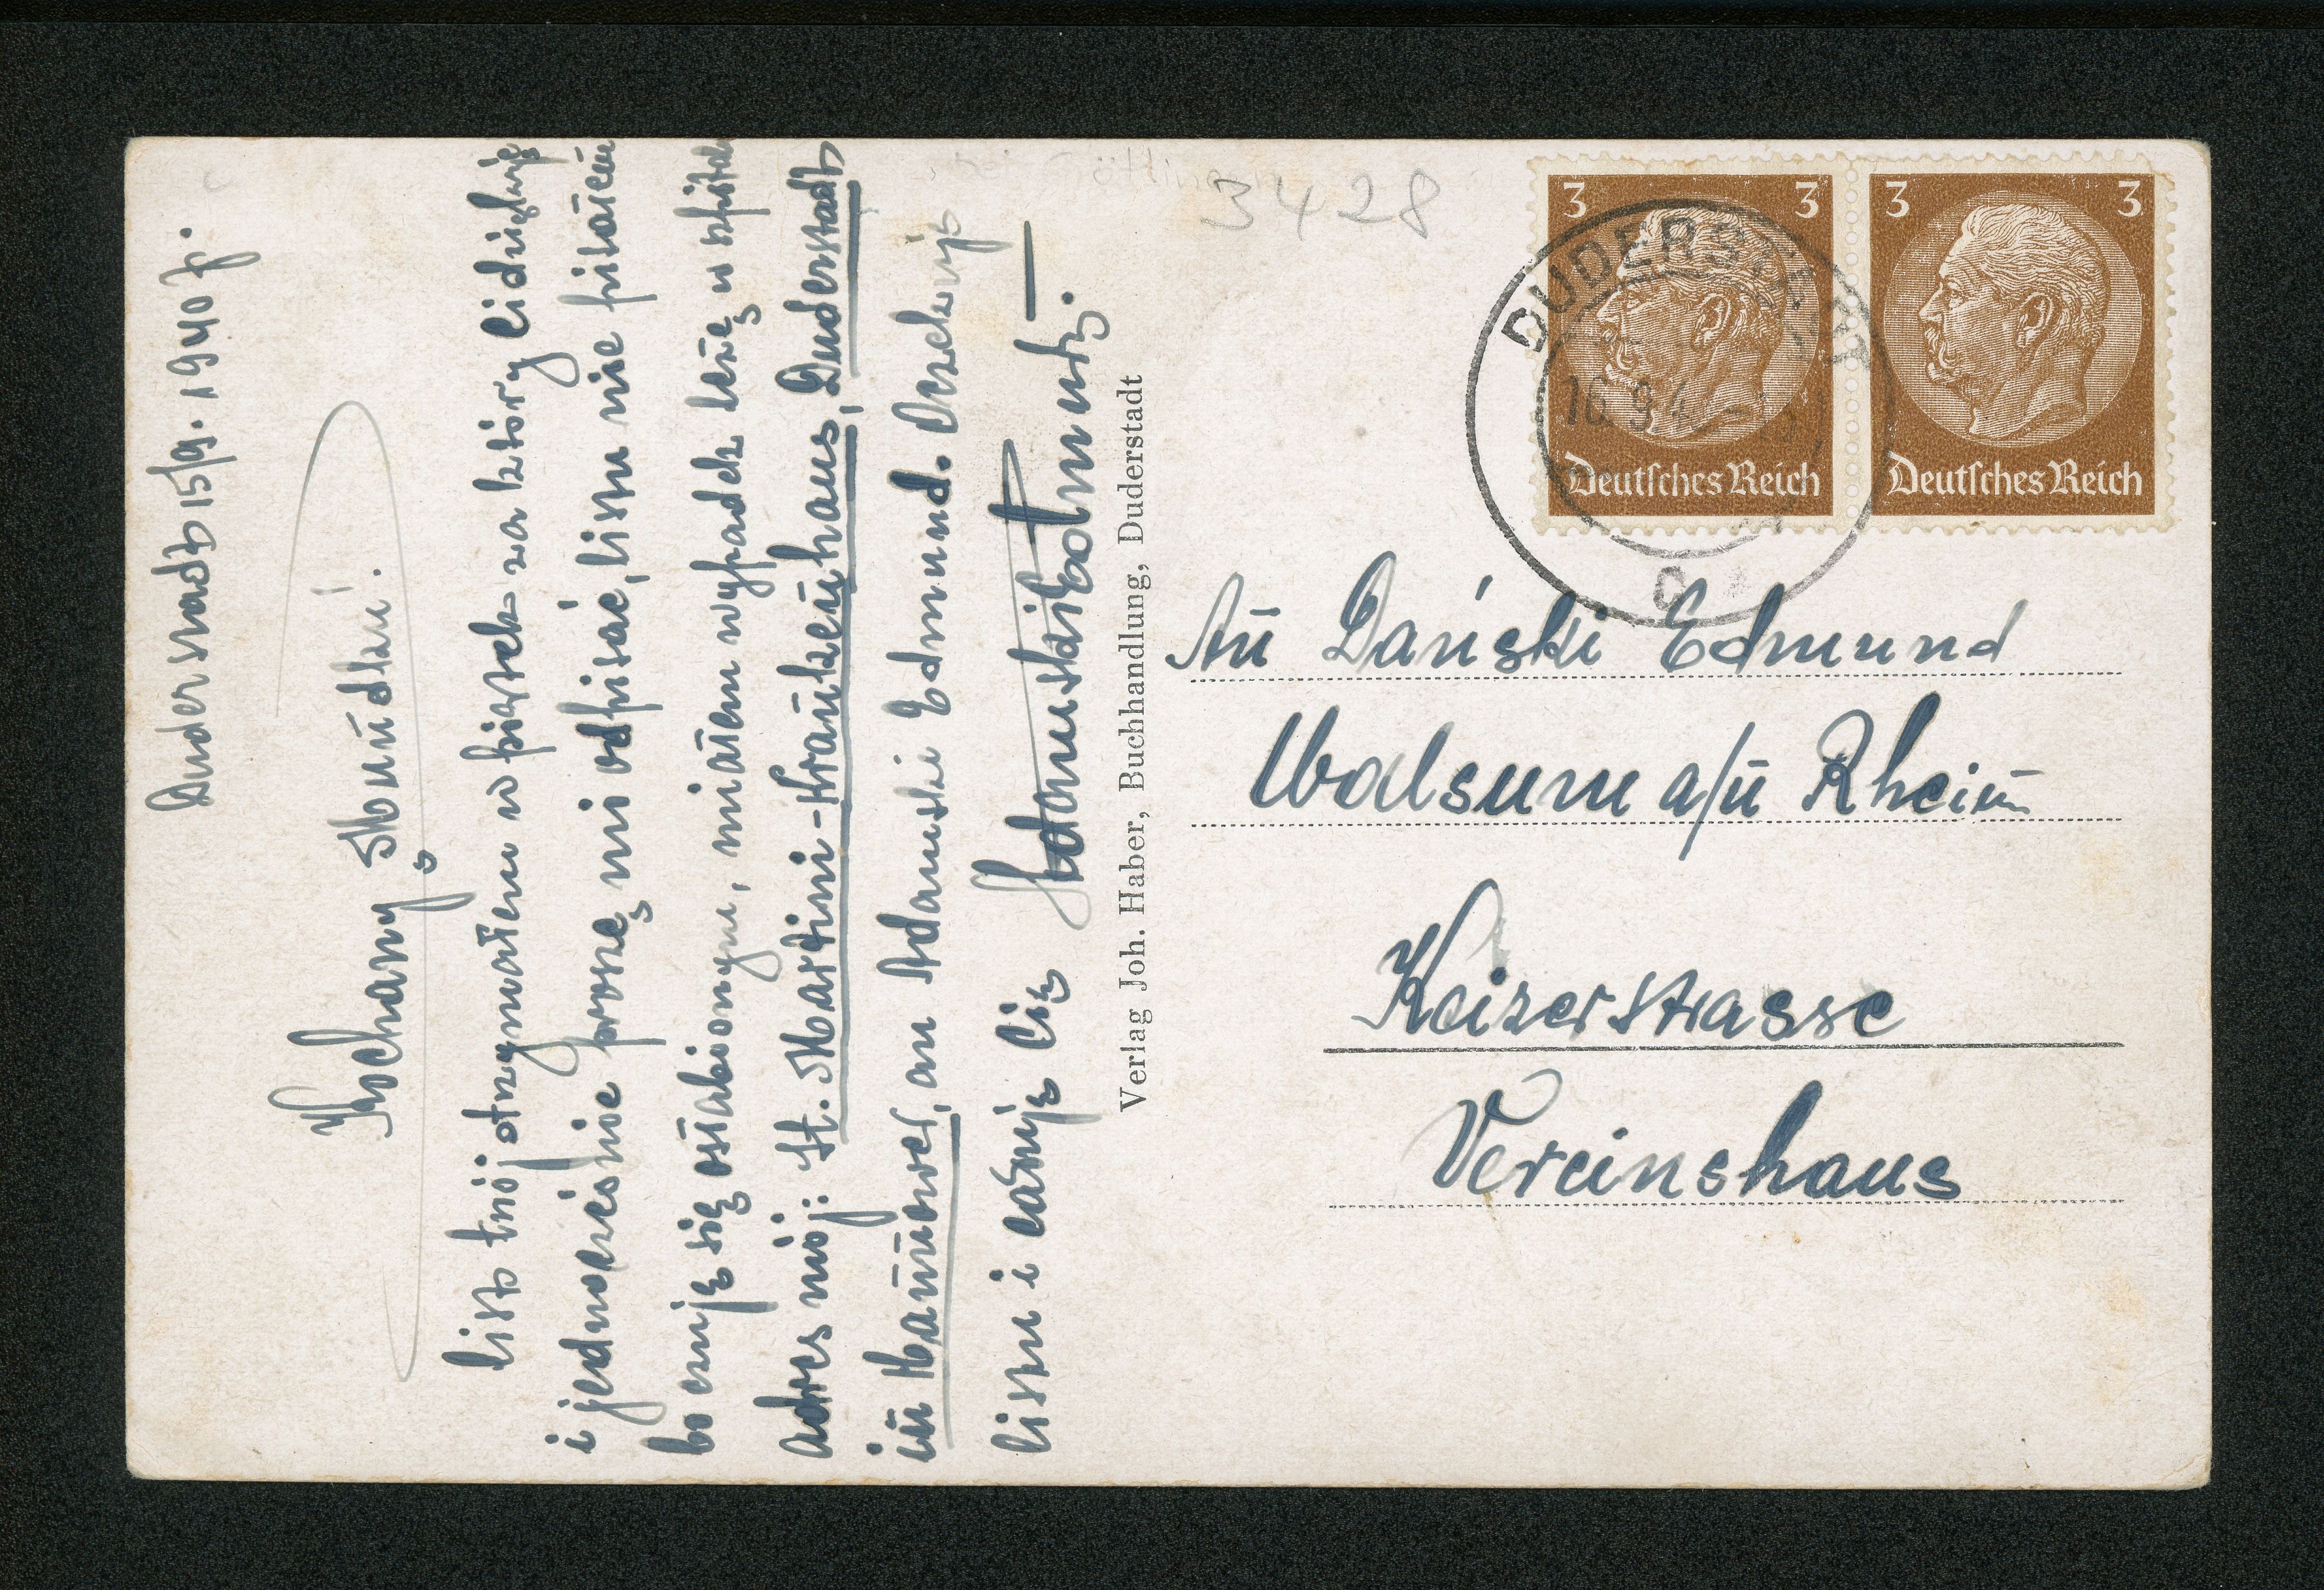 Duderstadt 15/9. 1940 r.
Kochany Mundku!
List twój otrzymałem w piątek za który Ci dziękuję
i jednocześnie proszę mi odpisać, listu nie pisałem
bo czuję się osłabionym, miałem wypadek leżę w szpitalu
adres mój: St. Martini-Krankenhaus, Duderstadt
in Hannower, an Adamski Edmund. Oczekuję
listu i całuję Cię Adamski Edmund.
Verlag Joh. Haber, Buchhandlung, Duderstadt
3428
3 3
Deutsches Reich
3 3
Deutsches Reich
DUDERSTADT
16.9.4
C
An Dański Edmund
Walsum a/n Rhein
Kaizerstrasse
Vereinshaus